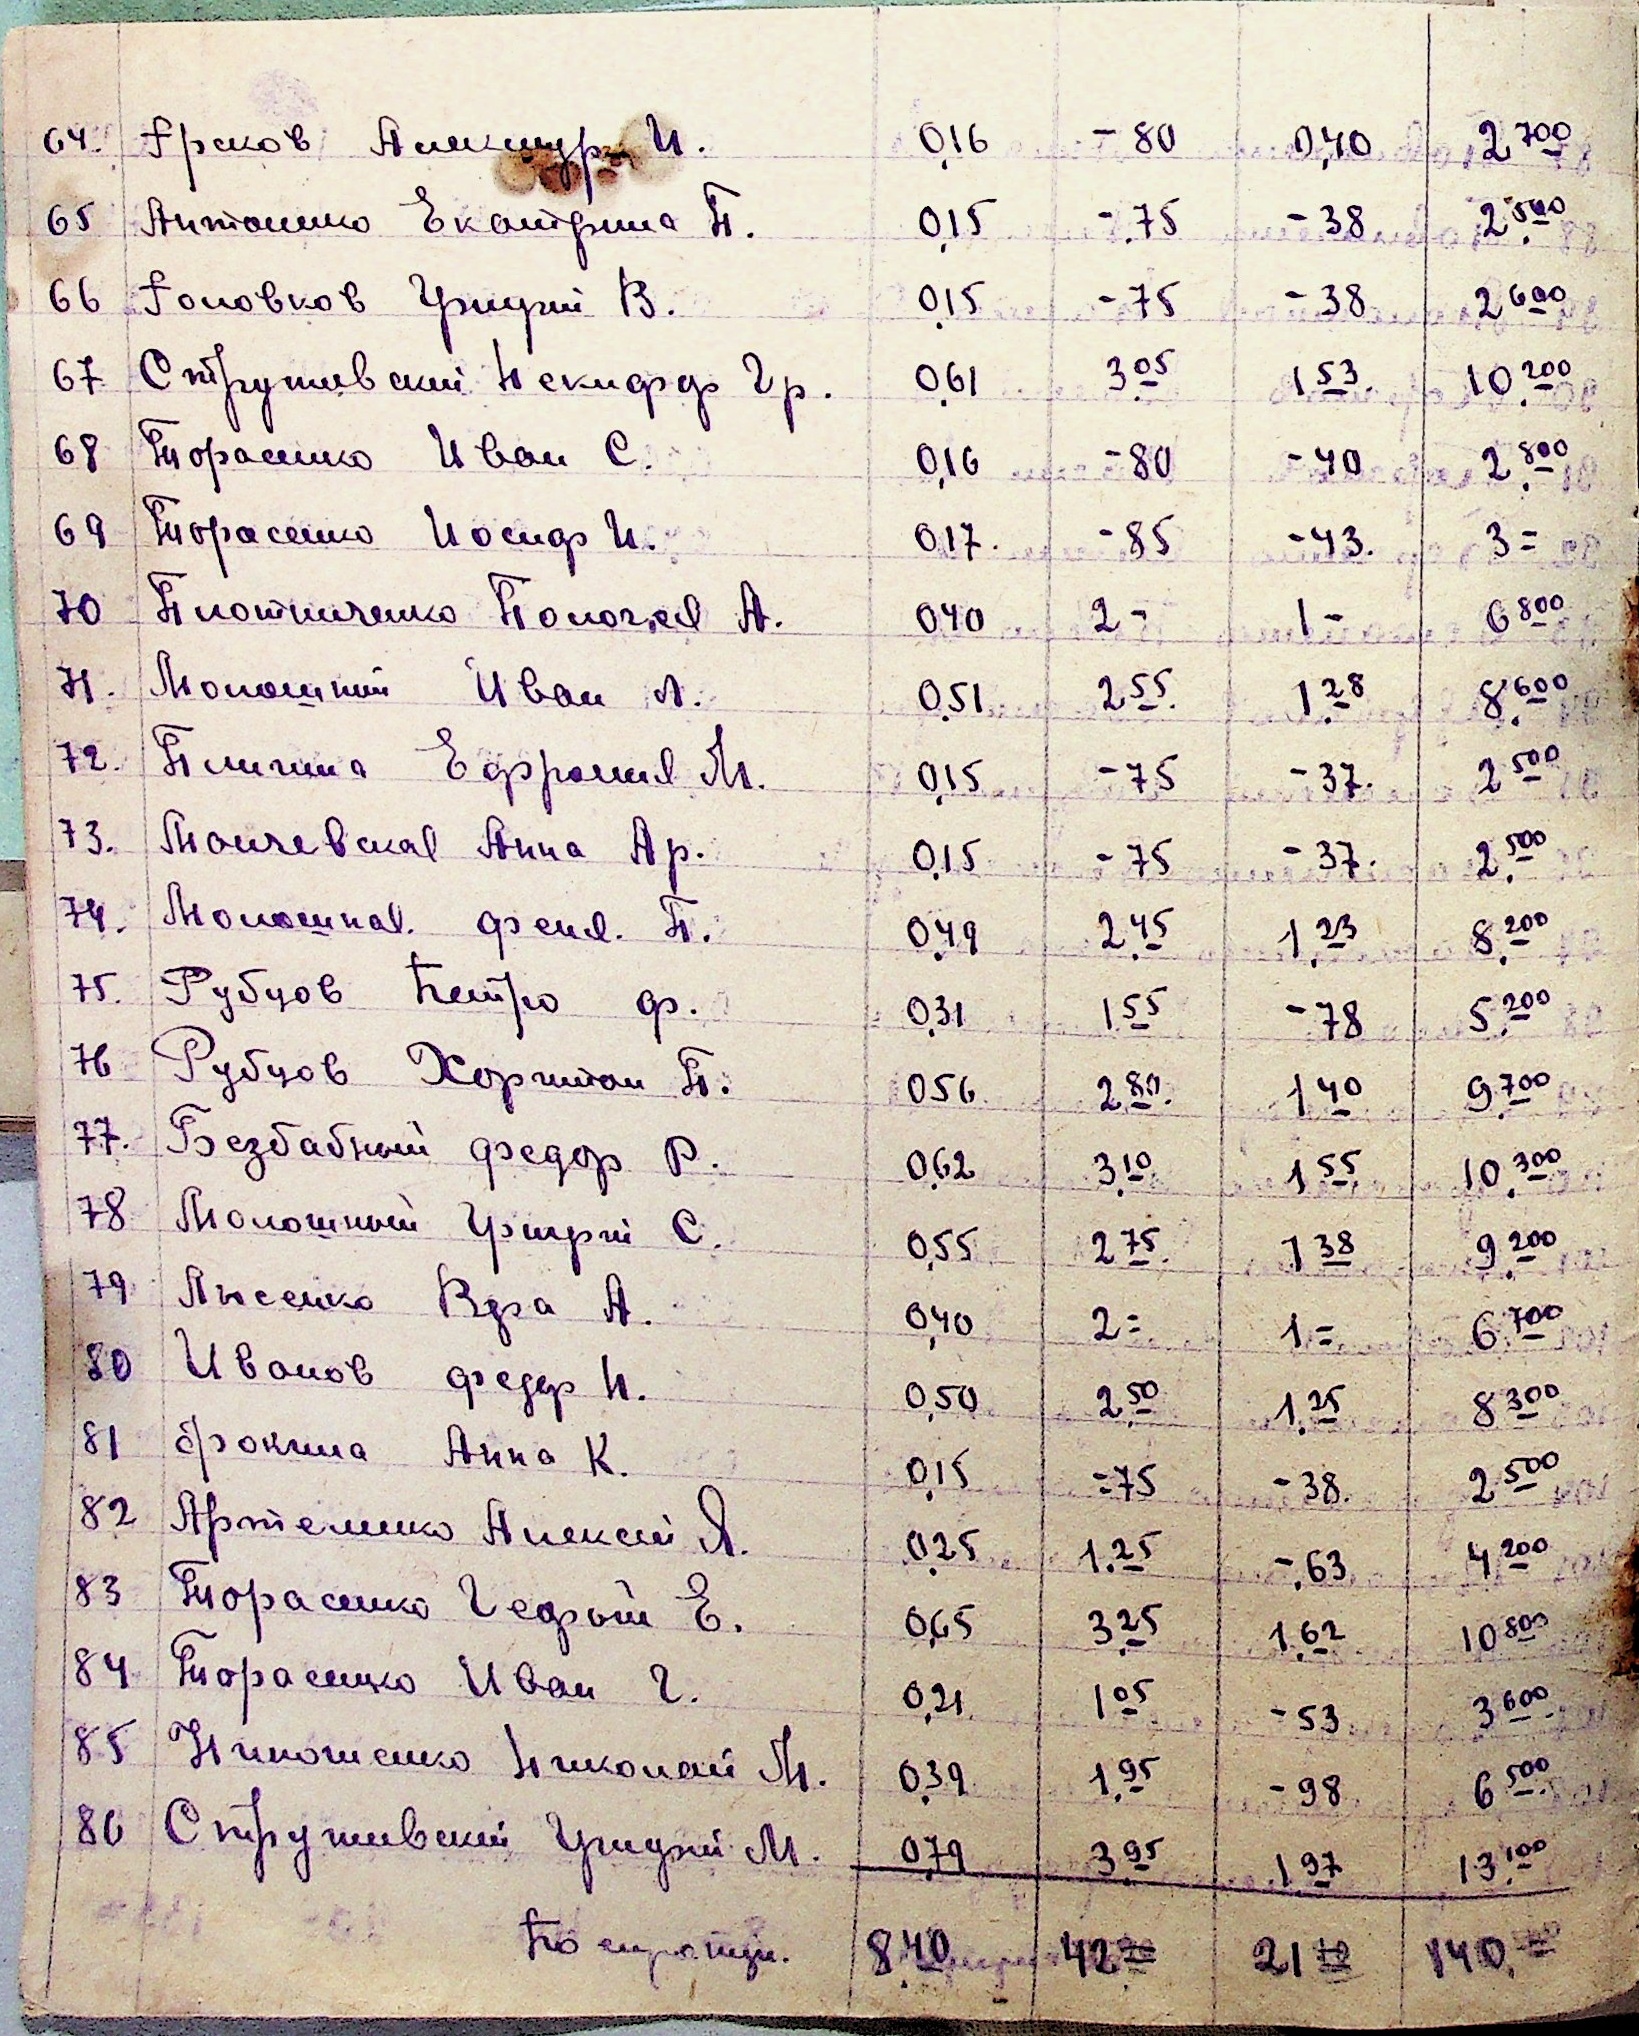 64. Греков Александр И. 0,16 -80 0,40 2 700
65 Антоненко Екатерина П. 0,15 -.75 -38 2.500
66 Головков Григорий В. 0,15 -75 -38 2 600
67 Струтинский Никифор Гр. 0,61 3 05 1 53. 10.200
68 Тарасенко Иван С. 0,16 -80 -40 2.800
69 Тарасенко Иосиф И. 0,17. -85 -43. 3=
70 Плотниченко А. 0,40 2- 1- 6 800
71. Молошний Иван А. 0,51 2 55. 1.28 8.600
72. Ефросиния М. 0,15 -75 -37. 2 500
73. Анна Ар. 0,15 -75 -37. 2.500
74. Молошная. П. 0,49 2.45 1.23 8.200
75. Рубцов Петро Ф. 0,31 1 55 -78 5.200
76 Рубцов Харитон П. 0,56 2 80. 1 40 9.700
77. Безбабный Федор Р. 0,62 3.10 1 55 10.300
78 Молошный Григорий С. 0,55 2 75. 1 38 9.200
79 Лысенко Вера А. 0,40 2= 1= 6 700
80 Иванов Федор И. 0,50 2.50 1.25 8 300
81 Фокина Анна К. 0,15 =75 -38. 2 500
82 Артеменко Алексей Я. 0,25 1.25 -.63 4 200
83 Тарасенко Е. 0,65 3.25 1.62 10 800
84 Тарасенко Иван Г. 0,21 1 05 -53 3 600
85 Николаенко Николай М. 0,39 1.95 -98 6 500
86 Струтинский Григорий М. 0,79 3.95 1 97 13.100
По 8,40 42 21 140.=